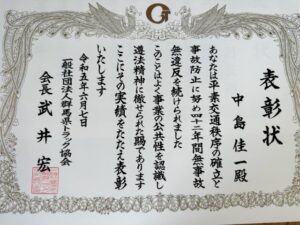 表彰状
中島佳一殿
あなたは平素交通秩序の確立と
事故防止に努め四十二年間無事故
無違反を続けられました
このことはよく事業の公共性を認識し
遵法精神に徹せられた賜であります
ここにその実績をたたえ表彰
いたします
令和五年六月七日
一般社団法人群馬県トラック協会
会長武井宏